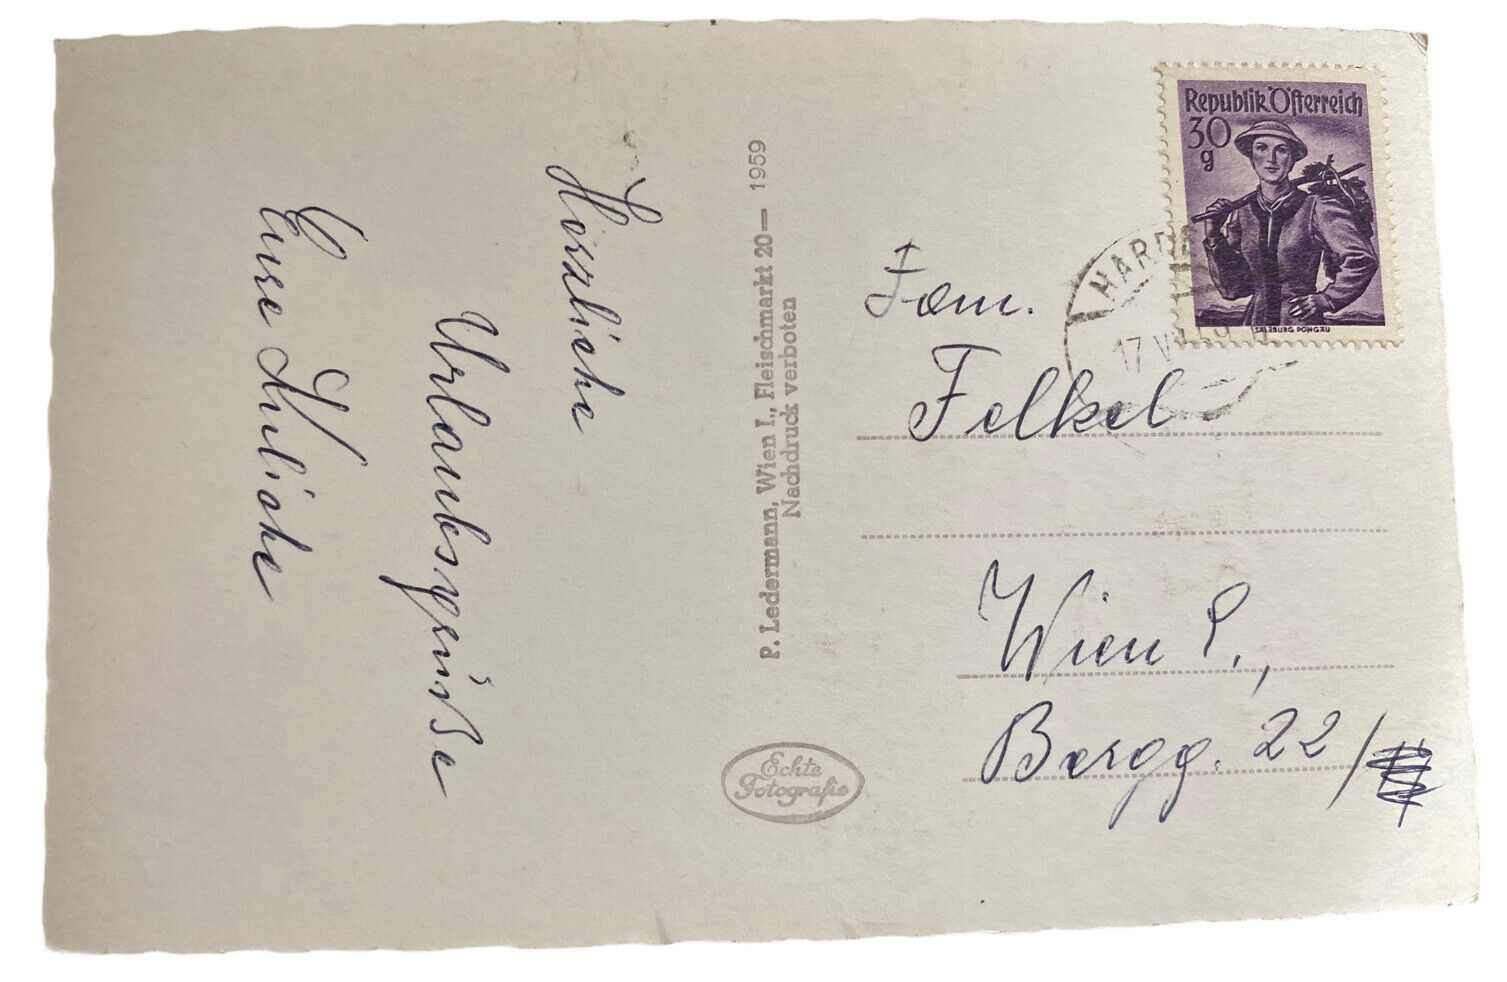 Herzliche
Urlaubsgrüße
Eure
P. Ledermann, Wien I., Fleischmarkt 20— 1959
Nachdruck verboten
Echte
Fotografie
Republik Österreich
30
g
SALZBURG PONGAU
17 V
Fam.
Felkel
Wien I.,
Bergg. 22/